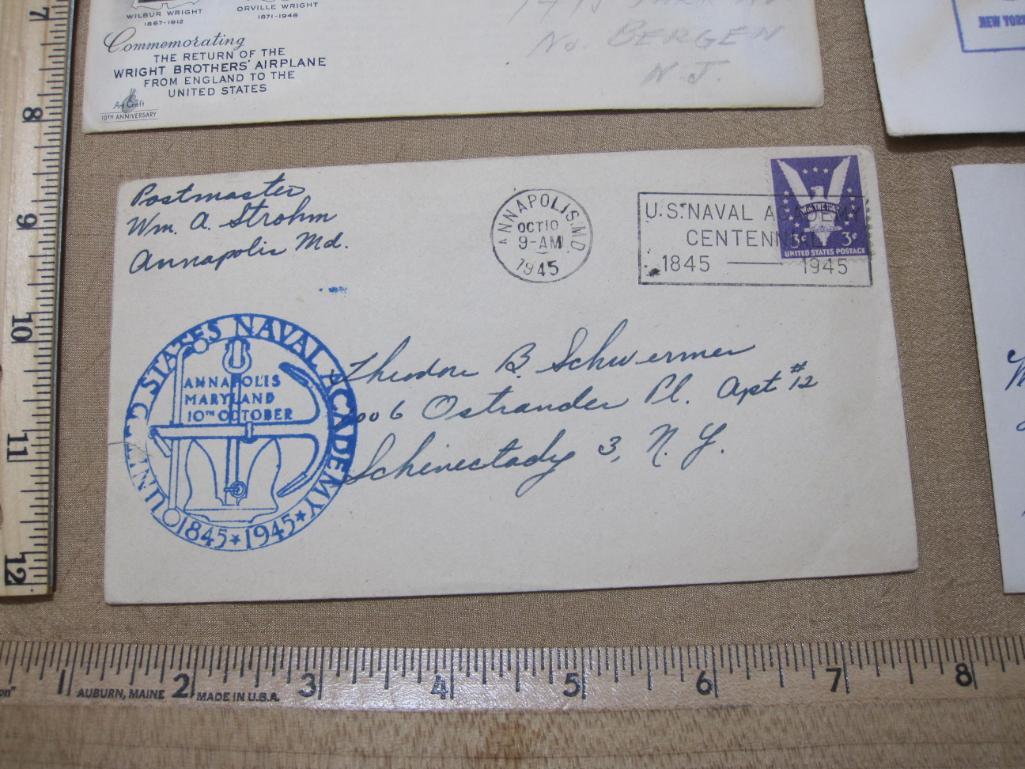 WILBUR WRIGHT
1867-1912
ORVILLE WRIGHT
1871-1948
Commemorating
THE RETURN OF THE
WRIGHT BROTHERS' AIRPLANE
FROM ENGLAND TO THE
UNITED STATES
Art Craft
10TH ANNIVERSARY
No. BERGEN
N.J.
NEW YORK
Postmaster
Wm. A. Strohm
Annapolis Md.
ANNAPOLIS, MD.
OCT 10
9-AM
1945
U.S. NAVAL ACADEMY
CENTENNIAL
1845 — 1945
WIN THE WAR
3¢ 3¢
UNITED STATES POSTAGE
UNITED STATES NAVAL ACADEMY
ANNAPOLIS
MARYLAND
10TH OCTOBER
1845 ★ 1945 ★
Theodore B. Schwermer
006 Ostrander Pl. Apt #12
Schenectady 3, N.Y.
7
8
9
10
11
12
1 2 3 4 5 6 7 8
AUBURN, MAINE MADE IN U.S.A.